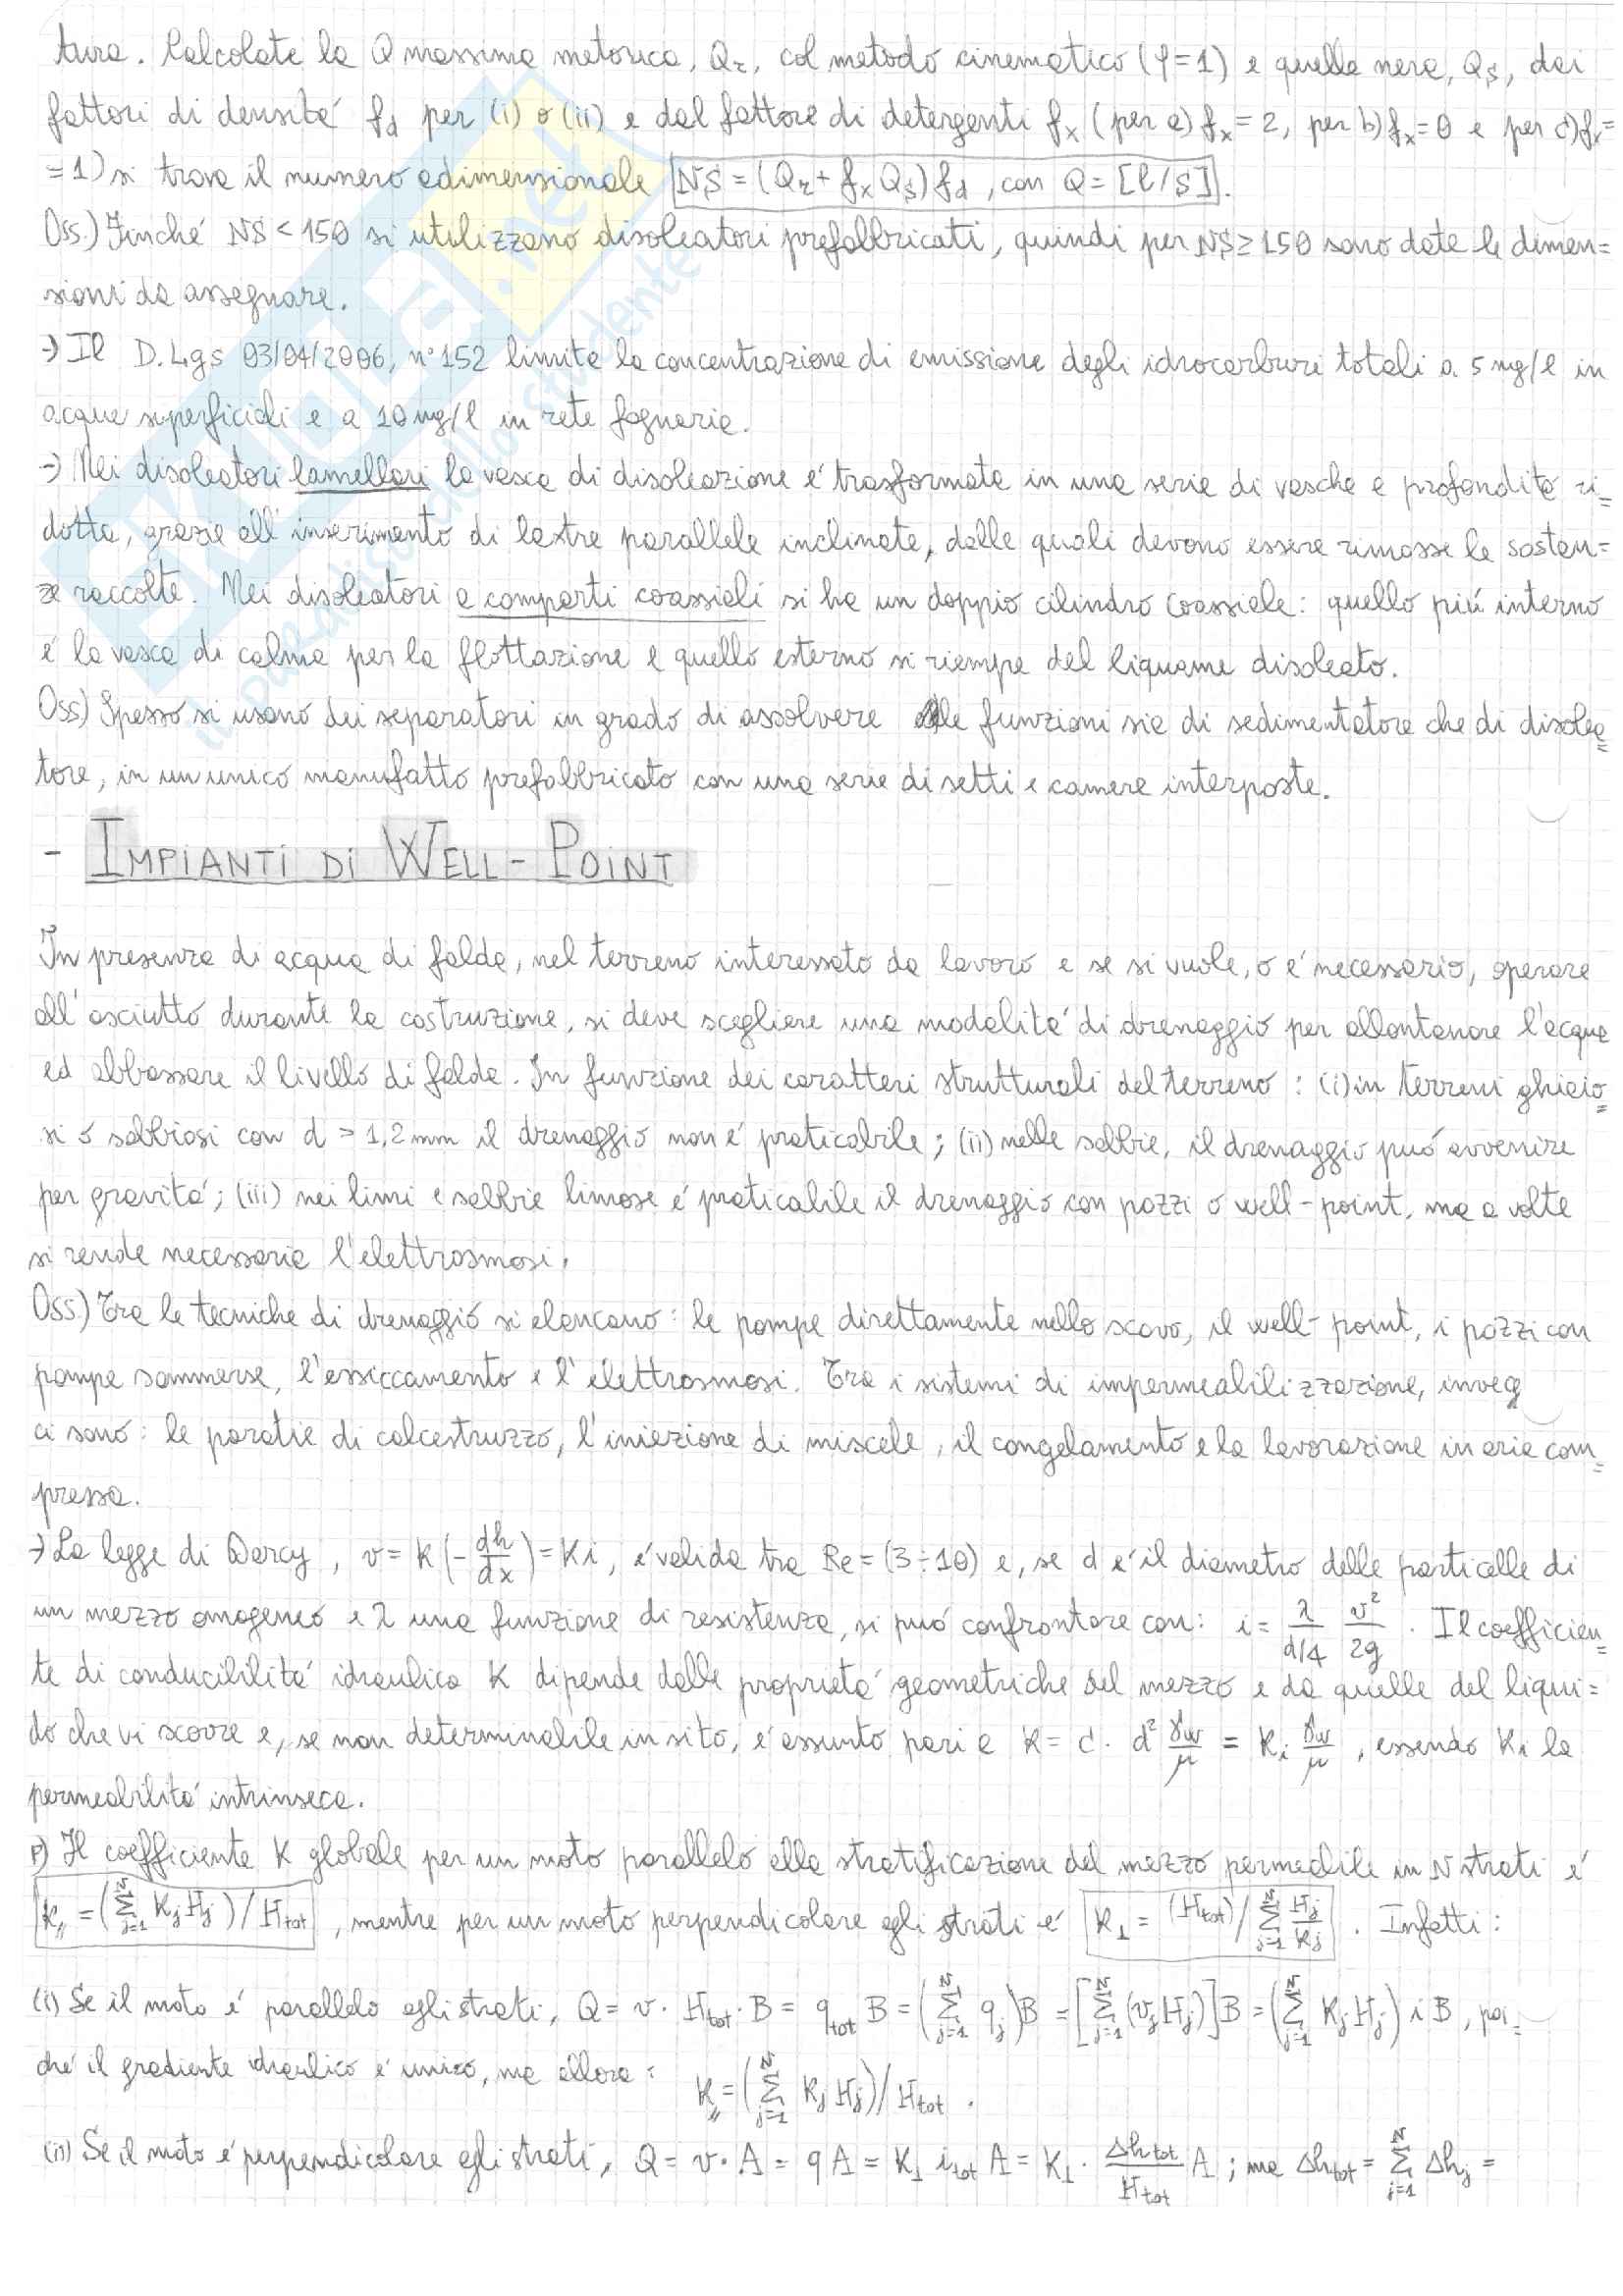 tura. Calcolate la Q massima metorica, Qr, col metodo cinematico (φ=1) e quella nera, Qs, dai
fattori di densità fd per (i) o (ii) e dal fattore di detergenti fx (per a) fx = 2, per b) fx = 0 e per c) fx=
=1) si trova il numero adimensionale NS = (Qr + fx Qs) fd , con Q = [l/s].
Oss.) Finché NS < 150 si utilizzano disoleatori prefabbricati, quindi per NS ≥ 150 sono date le dimen=
sioni da assegnare.
→ Il D.Lgs 03/04/2006, n° 152 limita la concentrazione di emissione degli idrocarburi totali a 5 mg/l in
acque superficiali e a 10 mg/l in rete fognaria.
→ Nei disoleatori lamellari la vasca di disoleazione è trasformata in una serie di vasche a profondità ri=
dotta, grazie all'inserimento di lastre parallele inclinate, dalle quali devono essere rimosse le sostan=
ze raccolte. Nei disoleatori a comparti coassiali si ha un doppio cilindro coassiale: quello più interno
è la vasca di calma per la flottazione e quello esterno si riempe del liquame disoleato.
Oss) Spesso si usano dei separatori in grado di assolvere alle funzioni sia di sedimentatore che di disolea=
tore, in un unico manufatto prefabbricato con una serie di setti e camere interposte.
- IMPIANTI DI WELL-POINT
In presenza di acqua di falda, nel terreno interessato da lavoro e se si vuole, o è necessario, operare
all'asciutto durante la costruzione, si deve scegliere una modalità di drenaggio per allontanare l'acqua
ed abbassare il livello di falda. In funzione dei caratteri strutturali del terreno : (i) in terreni ghiaio=
si o sabbiosi con d > 1,2 mm il drenaggio non è praticabile ; (ii) nelle sabbie, il drenaggio può avvenire
per gravità ; (iii) nei limi e sabbie limose è praticabile il drenaggio con pozzi o well-point, ma a volte
si rende necessaria l'elettrosmosi.
Oss.) Tra le tecniche di drenaggio si elencano : le pompe direttamente nello scavo, il well-point, i pozzi con
pompe sommerse, l'essiccamento e l'elettrosmosi. Tra i sistemi di impermeabilizzazione, invece
ci sono : le paratie di calcestruzzo, l'iniezione di miscele, il congelamento e la lavorazione in aria com=
pressa.
→ La legge di Darcy, v = K (- dh/dx) = Ki, è valida tra Re = (3÷10) e, se d è il diametro delle particelle di
un mezzo omogeneo e λ una funzione di resistenza, si può confrontare con: i = λ/(d/4) v²/2g . Il coefficien=
te di conducibilità idraulica K dipende dalle proprietà geometriche del mezzo e da quelle del liqui=
do che vi scorre e, se non determinabile in sito, è assunto pari a K = C · d² γw/μ = Ki γw/μ , essendo Ki la
permeabilità intrinseca.
P) Il coefficiente K globale per un moto parallelo alla stratificazione del mezzo permeabile in N strati è
K∥ = (∑j=1^N Kj Hj) / Htot , mentre per un moto perpendicolare agli strati è K⊥ = (Htot) / ∑j=1^N Hj/Kj . Infatti :
(i) Se il moto è parallelo agli strati, Q = v · Htot · B = qtot B = (∑j=1^N qj)B = [∑j=1^N (vj Hj)]B = (∑j=1^N Kj Hj) i B , poi=
ché il gradiente idraulico è unico, ma allora : K∥ = (∑j=1^N Kj Hj) / Htot .
(ii) Se il moto è perpendicolare agli strati, Q = v · A = q A = K⊥ itot A = K⊥ · Δhtot/Htot A ; ma Δhtot = ∑j=1^N Δhj =